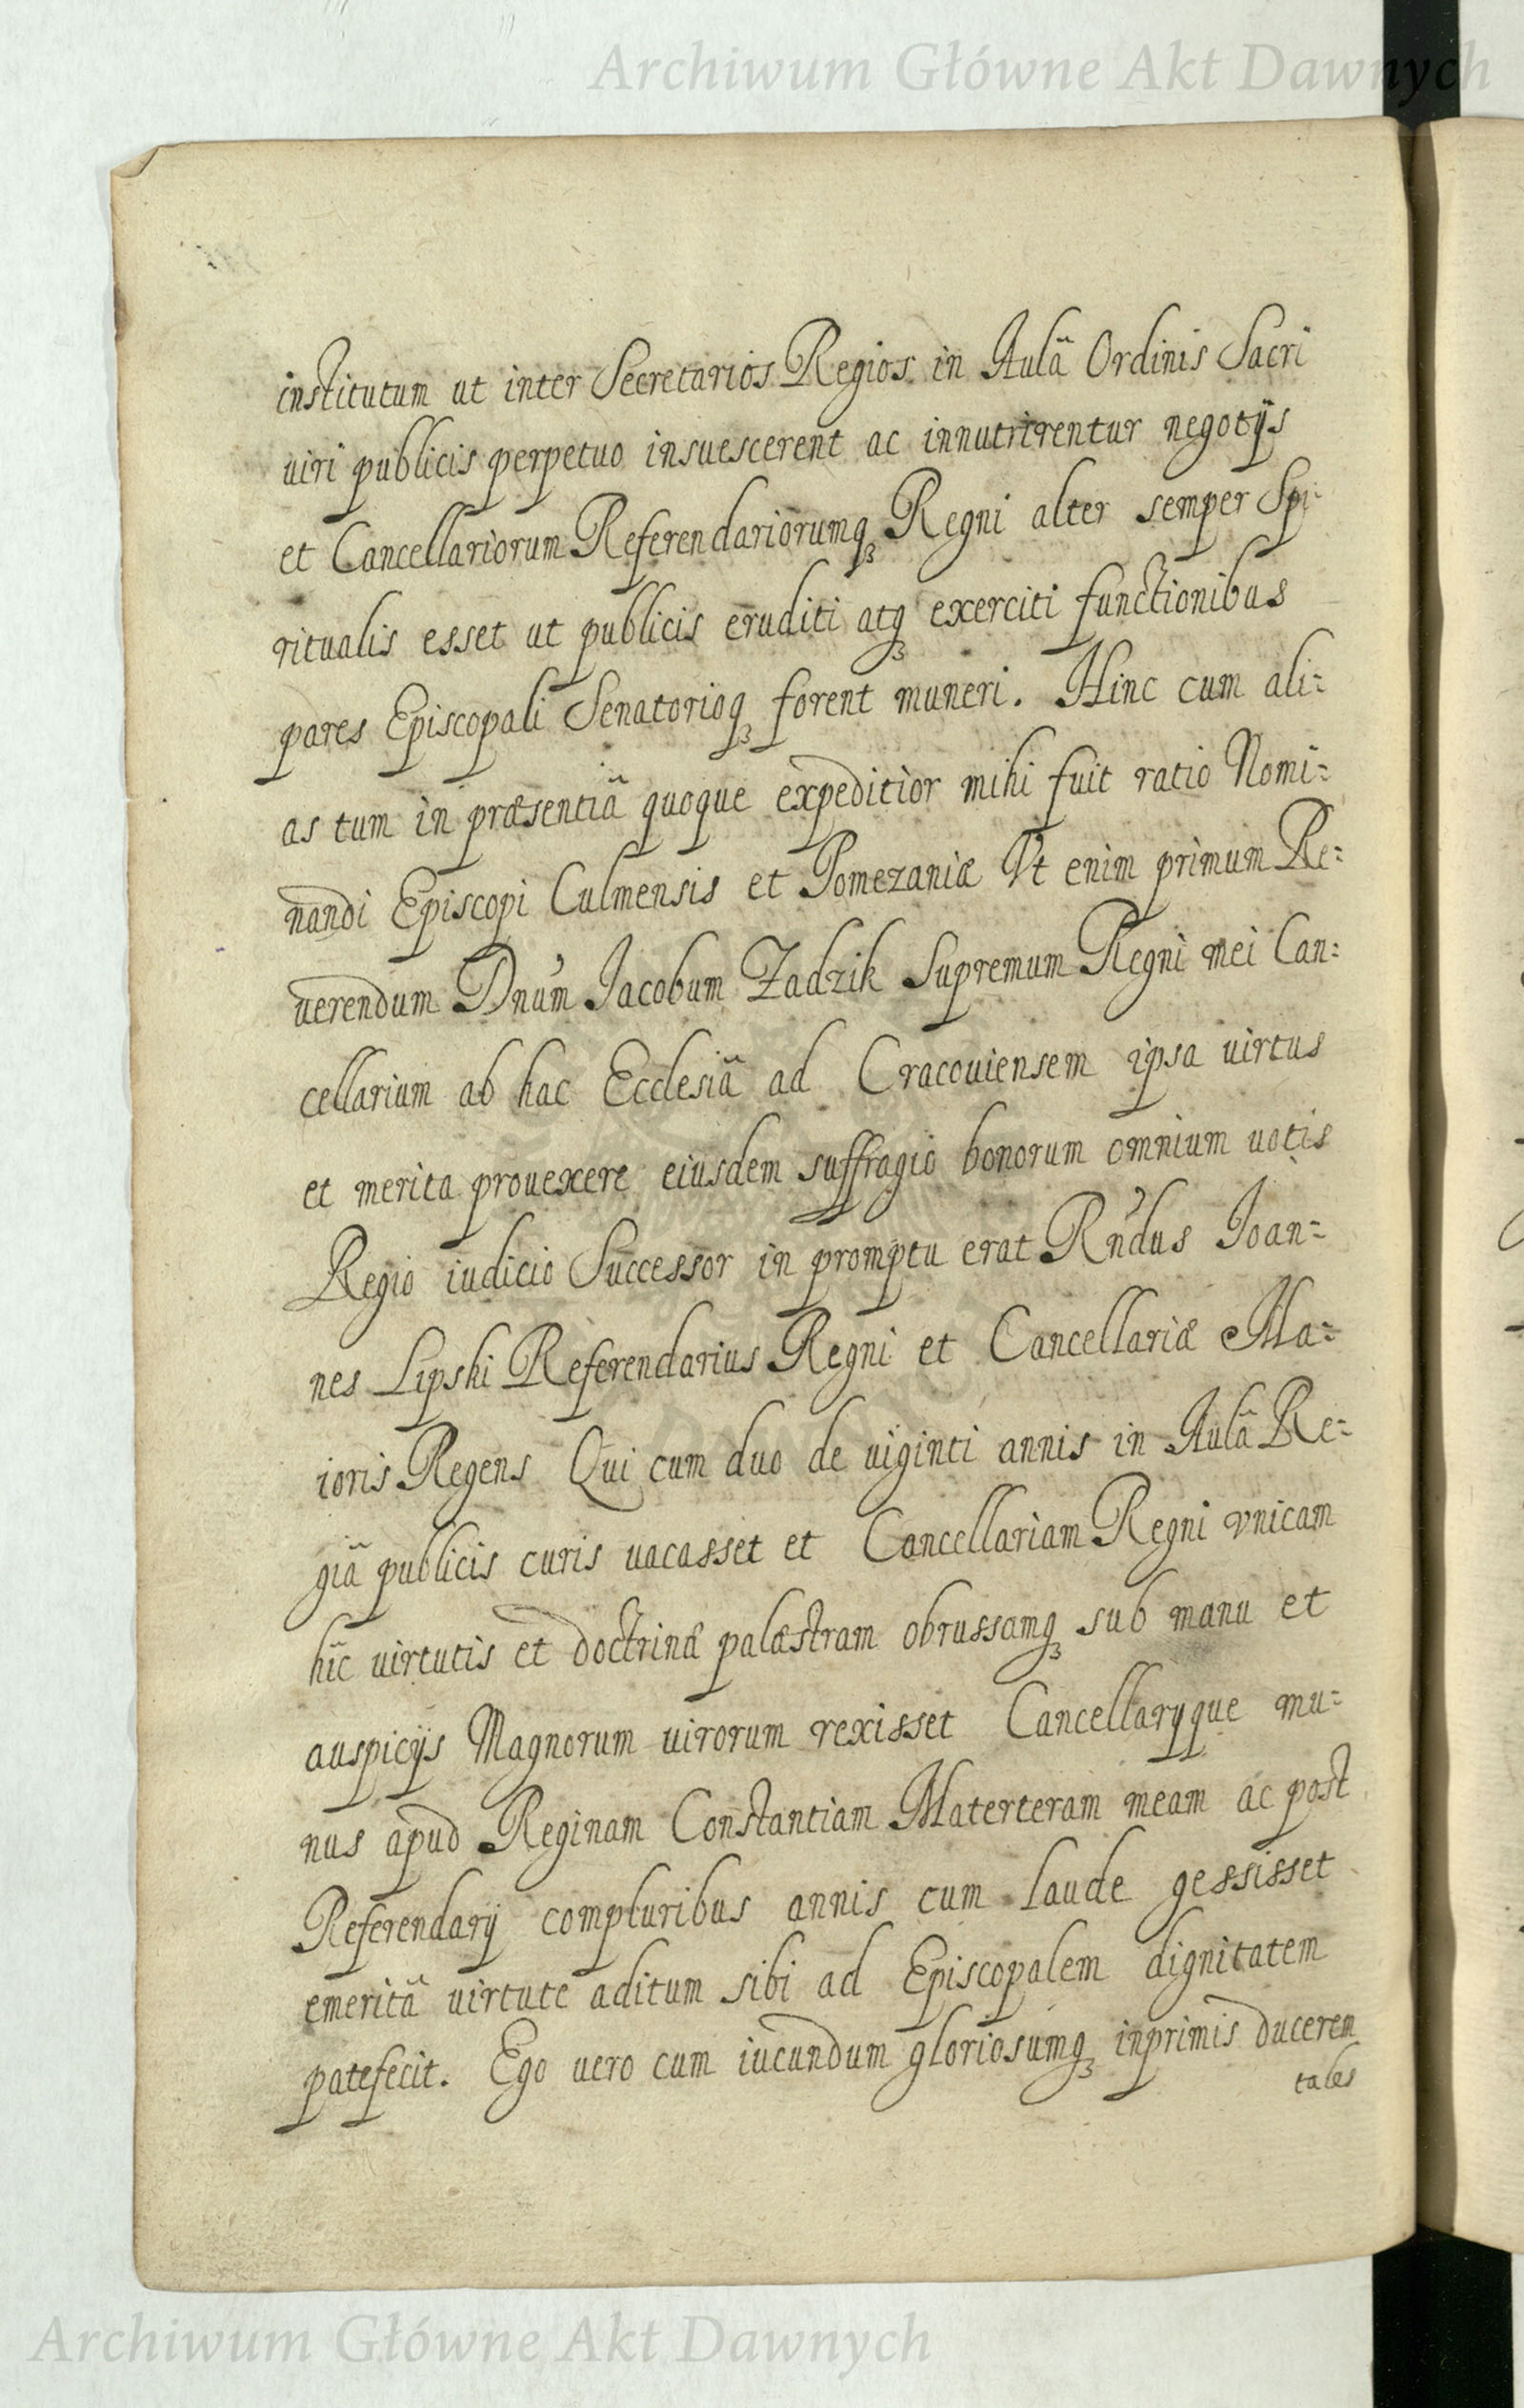 Archiwum Główne Akt Dawnych
institutum ut inter Secretarios Regios in Aulã Ordinis Sacri
uiri publicis perpetuo insuescerent ac innutrirentur negotÿs
et Cancellariorum Referendariorumqꝫ Regni alter semper Spi-
ritualis esset ut publicis eruditi atqꝫ exerciti functionibus
pares Episcopali Senatorioqꝫ forent muneri. Hinc cum ali=
as tum in præsentiã quoque expeditior mihi fuit ratio Nomi=
nandi Episcopi Culmensis et Pomezaniæ Vt enim primum Re=
uerendum Dnum̃ Jacobum Zadzik Supremum Regni mei Can=
cellarium ab hac Ecclesiã ad Cracouiensem ipsa uirtus
et merita prouexere eiusdem suffragio bonorum omnium uotis
Regio iudicio Successor in promptu erat Rñdus Joan=
nes Lipski Referendarius Regni et Cancellariæ Ma=
ioris Regens Qui cum duo de uiginti annis in Aulã Re=
giã publicis curis uacasset et Cancellariam Regni vnicam
hic̃ uirtutis et doctrinæ palæstram obrussamqꝫ sub manu et
auspicÿs Magnorum uirorum rexisset Cancellarÿque mu=
nus apud Reginam Constantiam Materteram meam ac post
Referendarÿ compluribus annis cum laude gessisset
emeritã uirtute aditum sibi ad Episcopalem dignitatem
patefecit. Ego uero cum iucundum gloriosumqꝫ inprimis ducerem
tales
Archiwum Główne Akt Dawnych